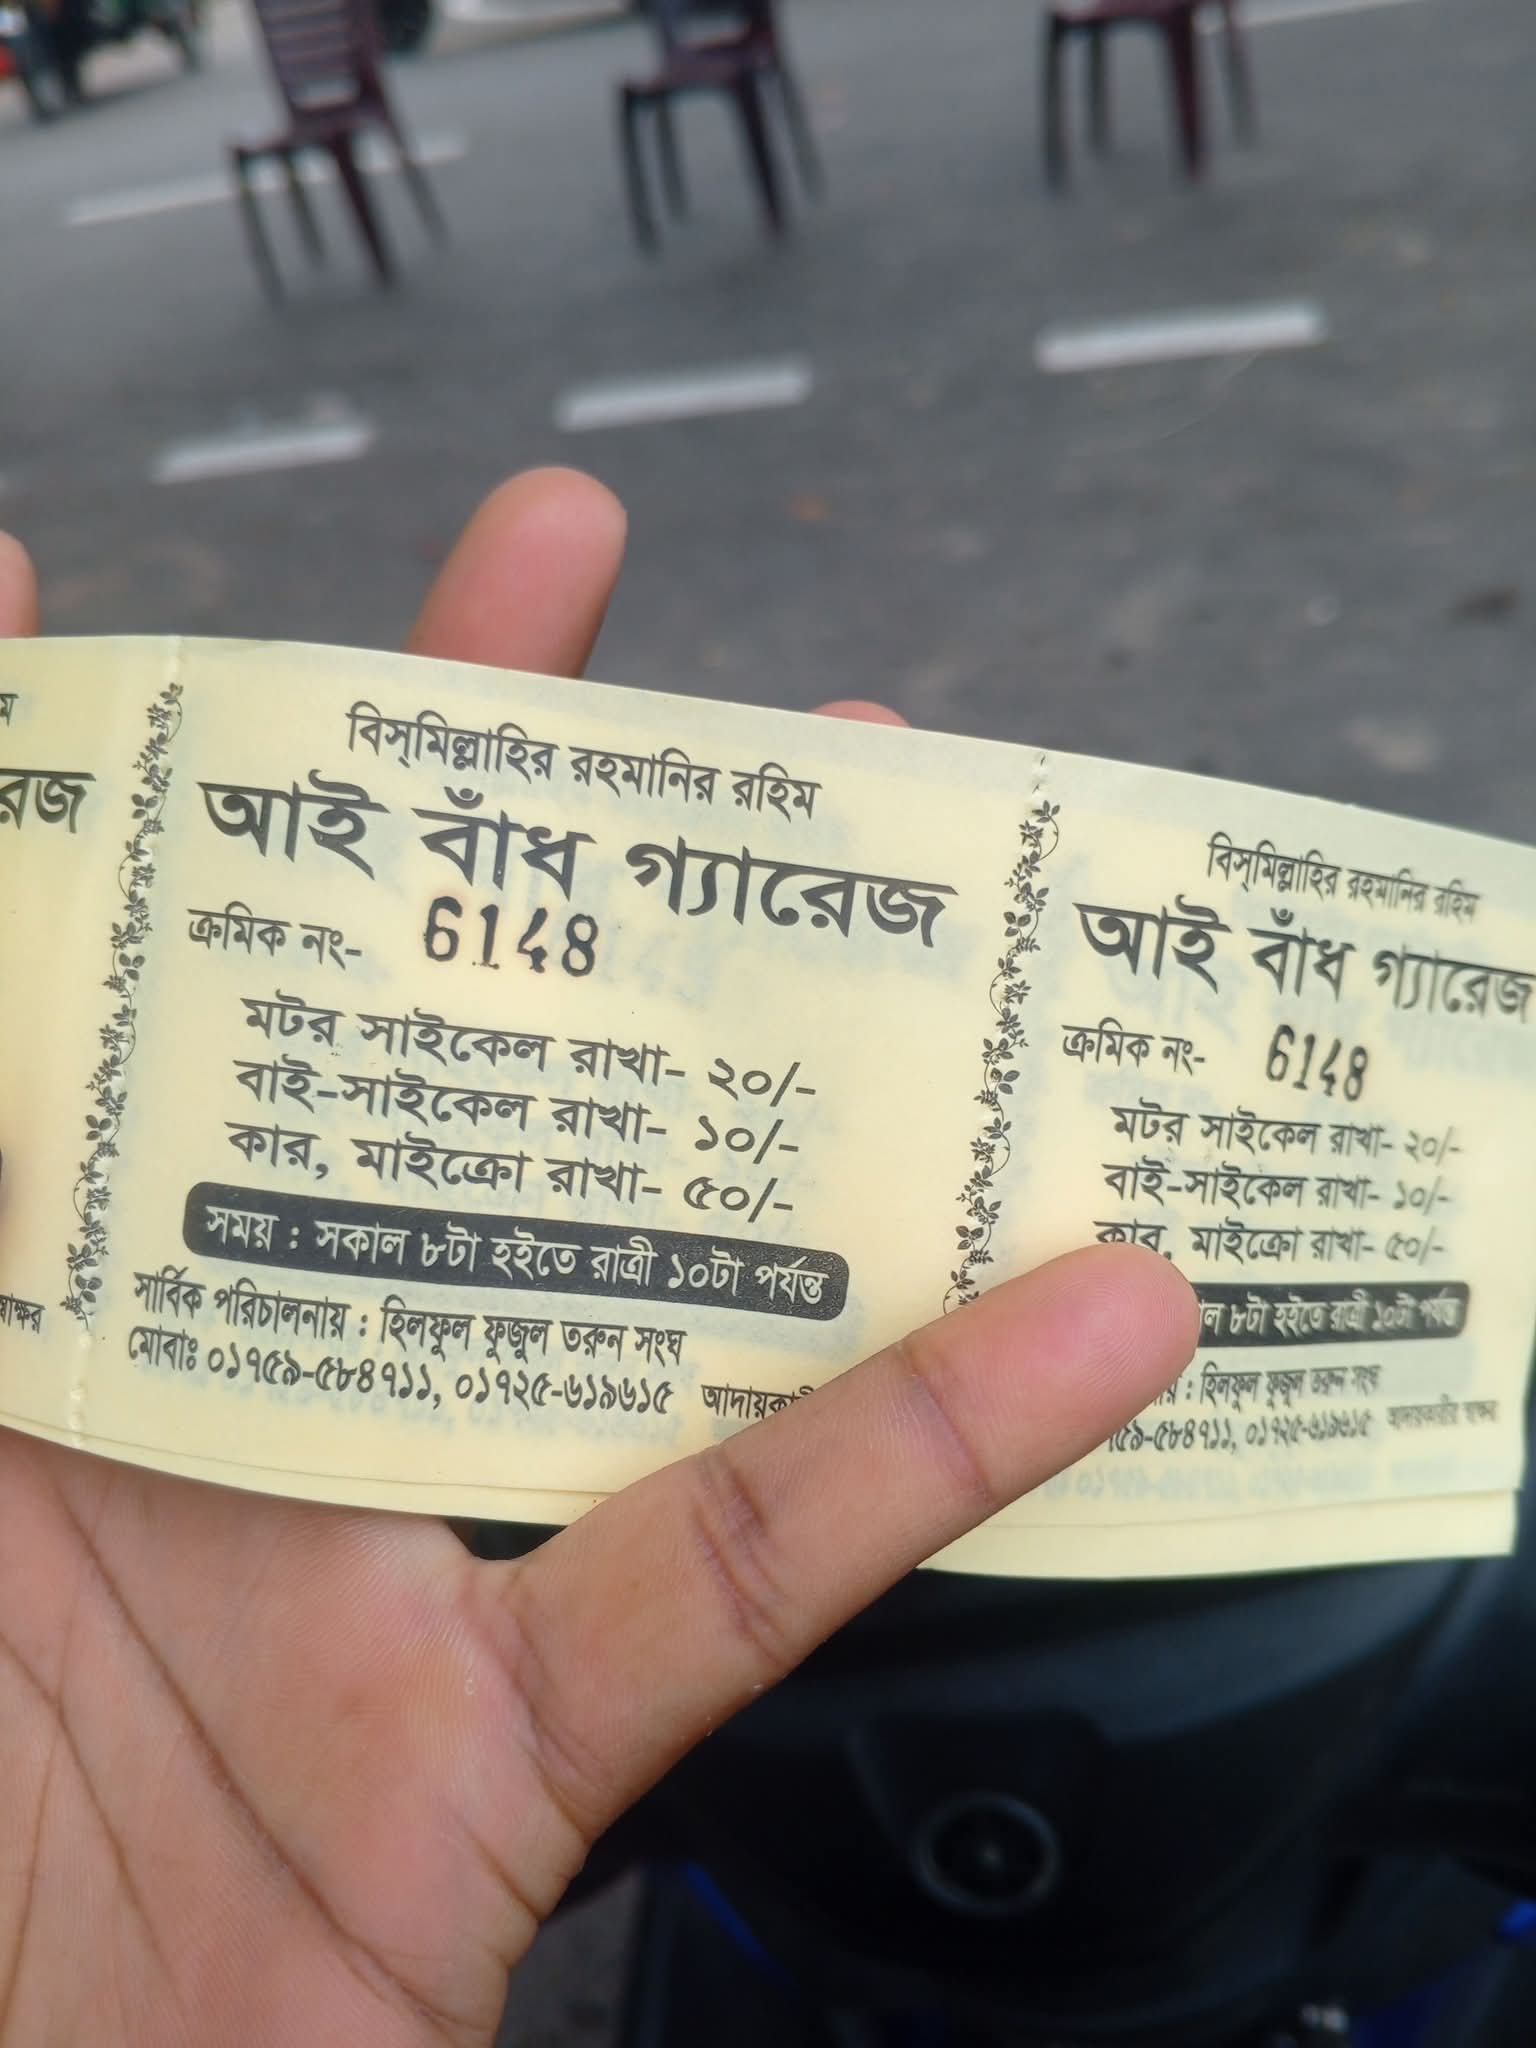 ম
রেজ
বিস্‌মিল্লাহির রহমানির রহিম
আই বাঁধ গ্যারেজ
ক্রমিক নং- 6148
মটর সাইকেল রাখা- ২০/-
বাই-সাইকেল রাখা- ১০/-
কার, মাইক্রো রাখা- ৫০/-
সময় : সকাল ৮টা হইতে রাত্রী ১০টা পর্যন্ত
সার্বিক পরিচালনায় : হিলফুল ফুজুল তরুন সংঘ
মোবাঃ ০১৭৫৯-৫৮৪৭১১, ০১৭২৫-৬১৯৬১৫
বিস্‌মিল্লাহির রহমানির রহিম
আই বাঁধ গ্যারেজ
ক্রমিক নং- 6148
মটর সাইকেল রাখা- ২০/-
বাই-সাইকেল রাখা- ১০/-
কার, মাইক্রো রাখা- ৫০/-
ল ৮টা হইতে রাত্রী ১০টা পর্যন্ত
: হিলফুল ফুজুল তরুন সংঘ
৫৯-৫৮৪৭১১, ০১৭২৫-৬১৯৬১৫ আদায়কারীর স্বাক্ষর